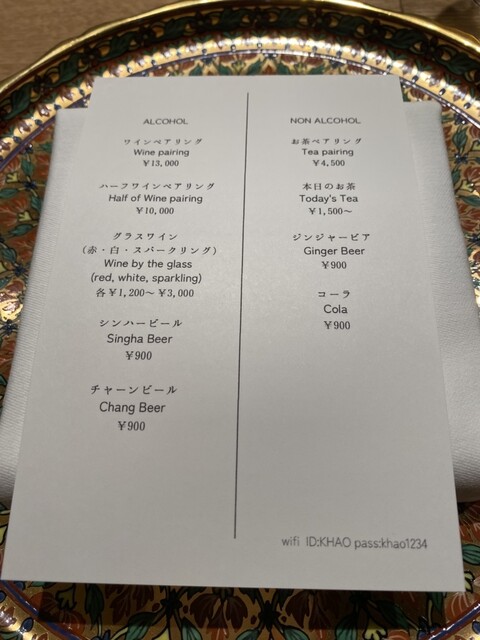 ALCOHOL
ワインペアリング
Wine pairing
￥13,000
ハーフワインペアリング
Half of Wine pairing
￥10,000
グラスワイン
（赤・白・スパークリング）
Wine by the glass
(red, white, sparkling)
各￥1,200～￥3,000
シンハービール
Singha Beer
￥900
チャーンビール
Chang Beer
￥900
NON ALCOHOL
お茶ペアリング
Tea pairing
￥4,500
本日のお茶
Today's Tea
￥1,500～
ジンジャービア
Ginger Beer
￥900
コーラ
Cola
￥900
wifi ID:KHAO pass:khao1234